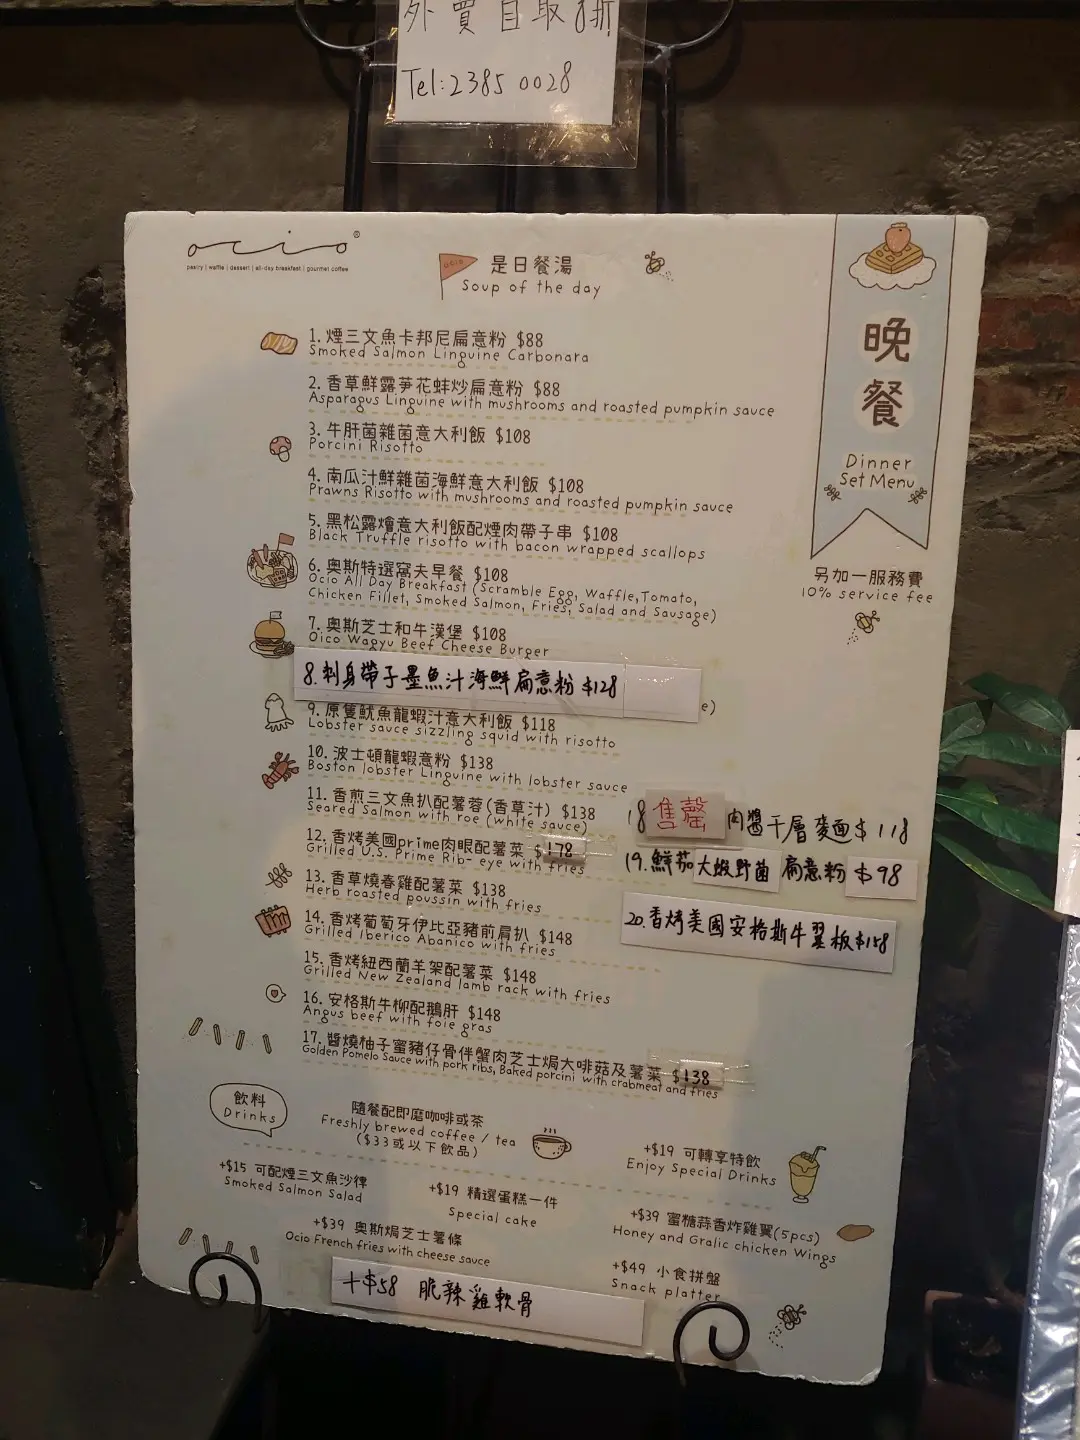 外賣自取8折
Tel:2385 0028
ocio®
pastry | waffle | dessert | all-day breakfast | gourmet coffee
ocio
是日餐湯
Soup of the day
晚餐
Dinner
Set Menu
另加一服務費
10% service fee
1. 煙三文魚卡邦尼扁意粉 $88
Smoked Salmon Linguine Carbonara
2. 香草鮮露笋花蚌炒扁意粉 $88
Asparagus Linguine with mushrooms and roasted pumpkin sauce
3. 牛肝菌雜菌意大利飯 $108
Porcini Risotto
4. 南瓜汁鮮雜菌海鮮意大利飯 $108
Prawns Risotto with mushrooms and roasted pumpkin sauce
5. 黑松露燴意大利飯配煙肉帶子串 $108
Black Truffle risotto with bacon wrapped scallops
6. 奧斯特選窩夫早餐 $108
Ocio All Day Breakfast (Scramble Egg, Waffle,Tomato,
Chicken Fillet, Smoked Salmon, Fries, Salad and Sausage)
7. 奧斯芝士和牛漢堡 $108
Oico Wagyu Beef Cheese Burger
8. 刺身帶子墨魚汁海鮮扁意粉 $128
e)
9. 原隻魷魚龍蝦汁意大利飯 $118
Lobster sauce sizzling squid with risotto
10. 波士頓龍蝦意粉 $138
Boston lobster Linguine with lobster sauce
11. 香煎三文魚扒配薯蓉(香草汁) $138
Seared Salmon with roe (white sauce)
12. 香烤美國prime肉眼配薯菜 $178
Grilled U.S. Prime Rib- eye with fries
13. 香草燒春雞配薯菜 $138
Herb roasted poussin with fries
14. 香烤葡萄牙伊比亞豬前肩扒 $148
Grilled Iberico Abanico with fries
15. 香烤紐西蘭羊架配薯菜 $148
Grilled New Zealand lamb rack with fries
16. 安格斯牛柳配鵝肝 $148
Angus beef with foie gras
17. 醬燒柚子蜜豬仔骨伴蟹肉芝士焗大啡菇及薯菜 $138
Golden Pomelo Sauce with pork ribs, Baked porcini with crabmeat and fries
18 售罄 肉醬千層麵 $118
19. 鮮茄大蝦野菌扁意粉 $98
20. 香烤美國安格斯牛翼板 $158
飲料
Drinks
隨餐配即磨咖啡或茶
Freshly brewed coffee / tea
($33或以下飲品)
+$19 可轉享特飲
Enjoy Special Drinks
+$15 可配煙三文魚沙律
Smoked Salmon Salad
+$19 精選蛋糕一件
Special cake
+$39 蜜糖蒜香炸雞翼(5pcs)
Honey and Gralic chicken Wings
+$39 奧斯焗芝士薯條
Ocio French fries with cheese sauce
+$49 小食拼盤
Snack platter
+$58 脆辣雞軟骨